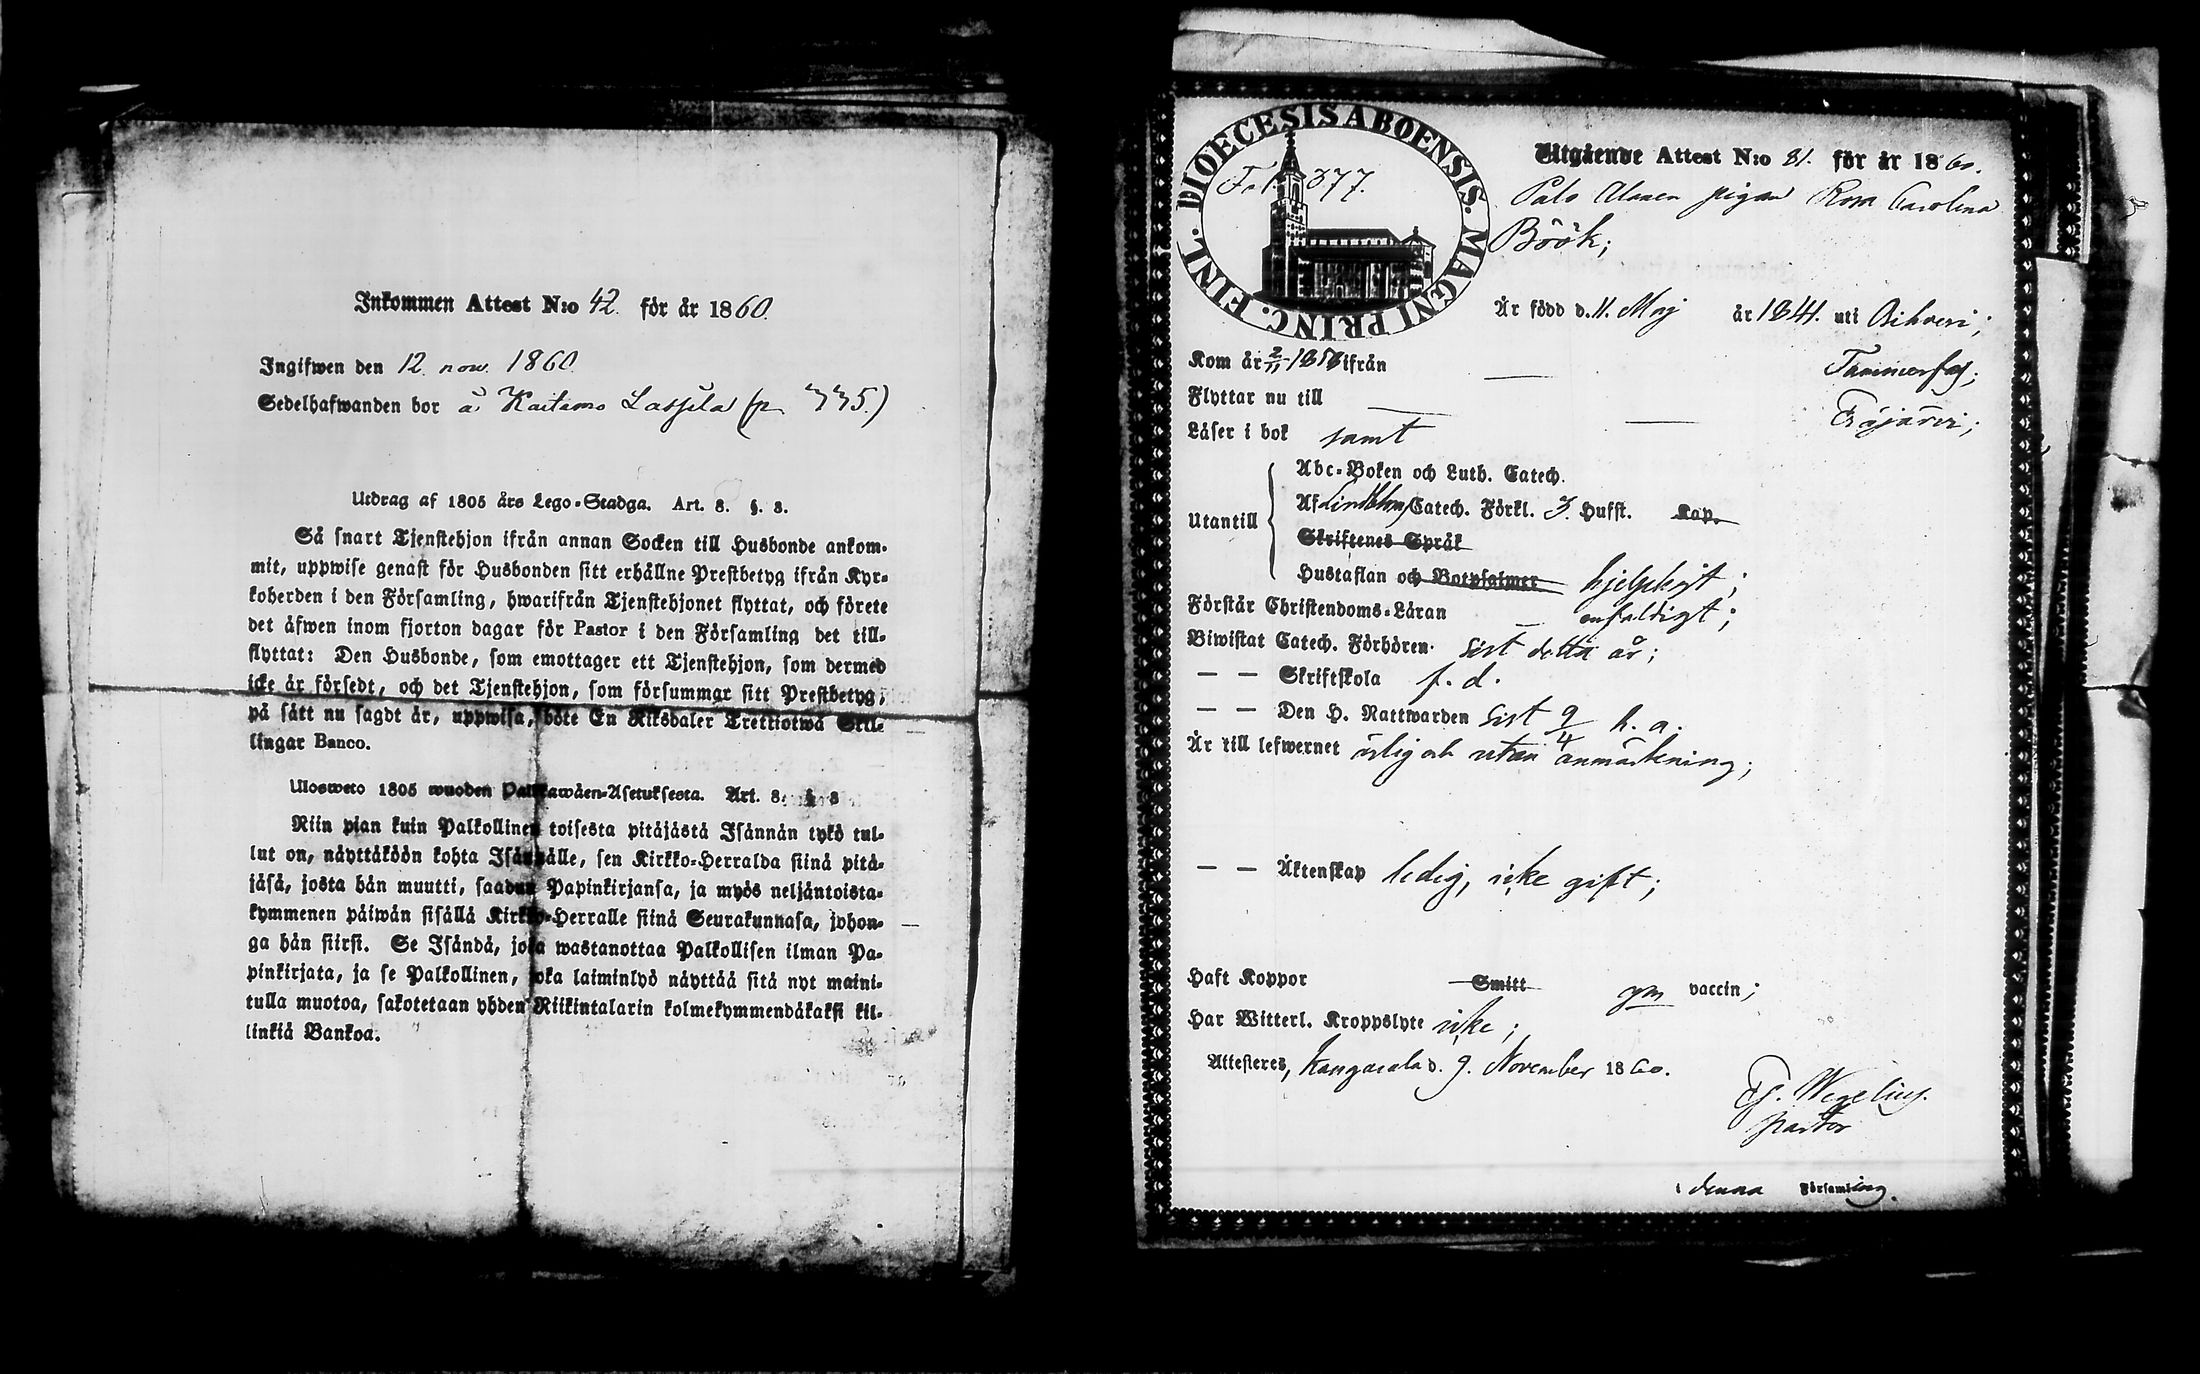 Inkommen Attest N:o 42. för år 1860.
Ingifwen den 12. nov. 1860.
Sedelhafwanden bor å Kaitamo Lassila (p. 335.)
Utdrag af 1805 års Lego-Stadga. Art. 8. §. 8.
Så snart Tjenstehjon ifrån annan Socken till Husbonde ankom-
mit, uppwise genast för Husbonden sitt erhållne Prestbetyg ifrån Kyr-
koherden i den Församling, hwarifrån Tjenstehjonet flyttat, och förete
det äfwen inom fjorton dagar för Pastor i den Församling det till-
flyttat: Den Husbonde, som emottager ett Tjenstehjon, som dermed
icke är försedt, och det Tjenstehjon, som försummar sitt Prestbetyg,
på sätt nu sagdt är, uppwisa, böte En Riksdaler Trettiotwå Skil-
lingar Banco.
Ulosweto 1805 wuoden Palkkawäen-Asetuksesta. Art. 8. § 8
Niin pian kuin Palkollinen toisesta pitäjästä Isännän tykö tul-
lut on, näyttäköön kohta Isännälle, sen Kirkko-Herralda siinä pitä-
jäsä, josta hän muutti, saadun Papinkirjansa, ja myös neljäntoista-
kymmenen päiwän sisällä Kirkko-Herralle siinä Seurakunnasa, johon-
ga hän siirsi. Se Isändä, joka wastanottaa Palkollisen ilman Pa-
pinkirjata, ja se Palkollinen, joka laiminlyö näyttää sitä nyt maini-
tulla muotoa, sakotetaan yhden Riikintalarin kolmekymmendäkaksi kil-
linkiä Bankoa.
DIOECESIS ABOENSIS. MAGNI PRINC. FINL.
Fol. 377.
Utgående Attest N:o 81. för år 1860.
Palo Alanen pigan Rosa Carolina
Böök;
Är född d. 11. Maj år 1841. uti Birkeri;
Kom år 2/11 1858 ifrån Tammerfors;
Flyttar nu till Eräjärvi;
Läser i bok samt
Utantill
Abc-Boken och Luth. Catech.
Af Lindbloms Catech. Förkl. 3. Hufst. Kap.
Skriftenes Språk
Hustaflan och Botpsalmer hjelpligt;
Förstår Christendoms-Läran enfaldigt;
Biwistat Catech. Förhören sist detta år;
— — Skriftskola f. d.
— — Den H. Nattwarden sist 9/4 h. a.
Är till lefwernet ärlig och utan anmärkning;
— — Äktenskap ledig, icke gift;
Haft Koppor Smitt gm vaccin;
Har Witterl. Kroppslyte icke;
Attesteres, Kangasala d. 9. November 1860.
Fg. Wegelius.
pastor
i denna Församling.